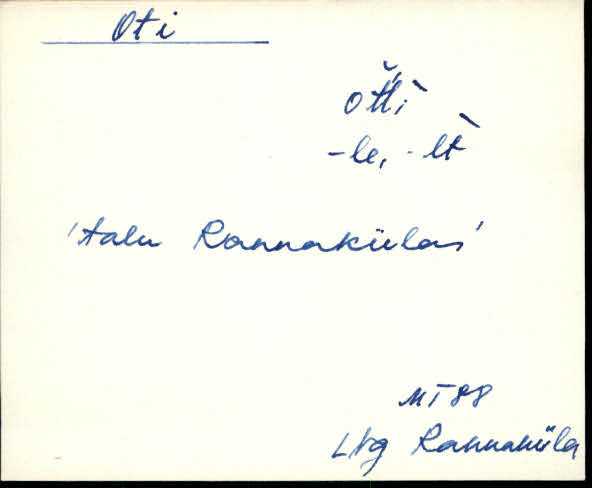 Oti
oťťì
-le, -lt̀
'talu Rannakülas'
MT 88
Lng Rannaküla